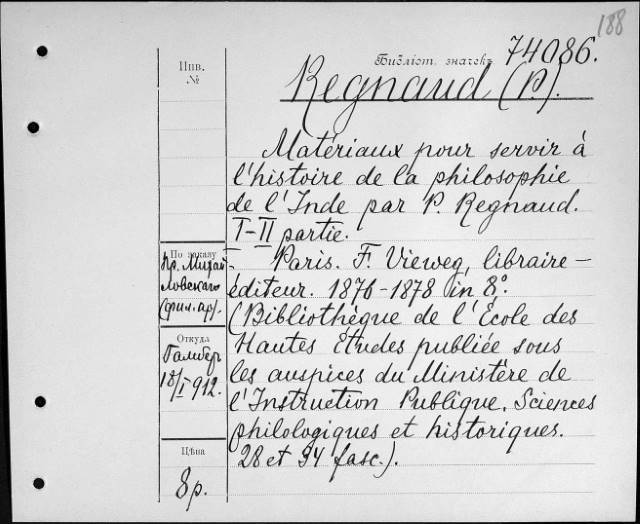 188
Библіот. значекъ 74086.
Инв.
№
Regnaud (P.).
Matériaux pour servir à
l'histoire de la philosophie
de l'Inde par P. Regnaud.
I-II partie.
Paris. F. Vieweg, libraire-
éditeur. 1876-1878 in 8°.
(Bibliothèque de l'École des
Hautes Études publiée sous
les auspices du Ministère de
l'Instruction Publique. Sciences
philologiques et historiques.
28 et 34 fasc.).
По заказу
Пр. Михай-
ловскаго
(фил. пр.).
Откуда
18/I 912.
Цѣна
8 р.